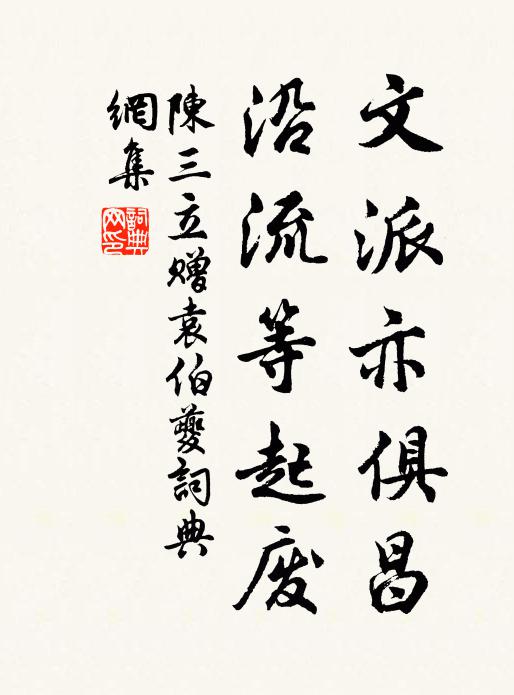 文派亦俱昌
沿流等起废
陳三立赠袁伯夔詞典
網集
詞典網印